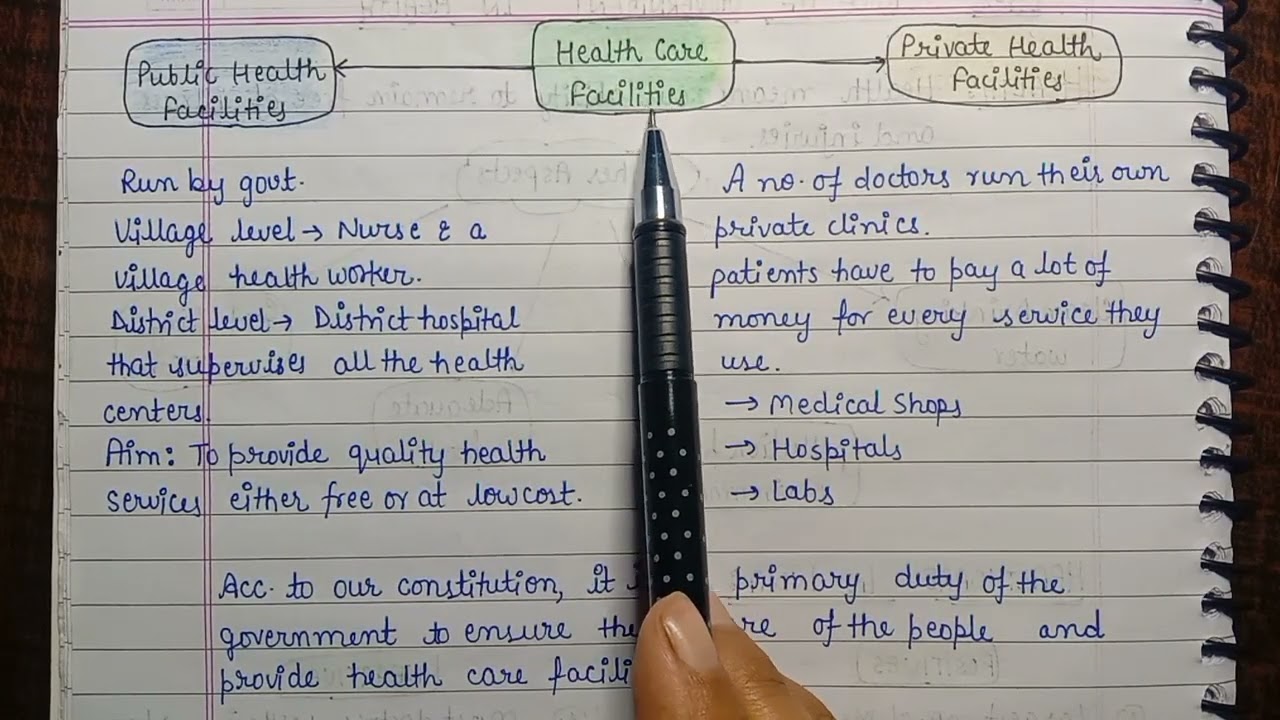 Health Care
Facilities
Public Health
Facilities
Private Health
Facilities
Run by govt.
Village level → Nurse & a
village health worker.
District level → District hospital
that supervises all the health
centers.
Aim: To provide quality health
services either free or at low cost.
A no. of doctors run their own
private clinics.
patients have to pay a lot of
money for every service they
use.
→ Medical Shops
→ Hospitals
→ Labs
Acc. to our constitution, it primary duty of the
government to ensure the of the people and
provide health care